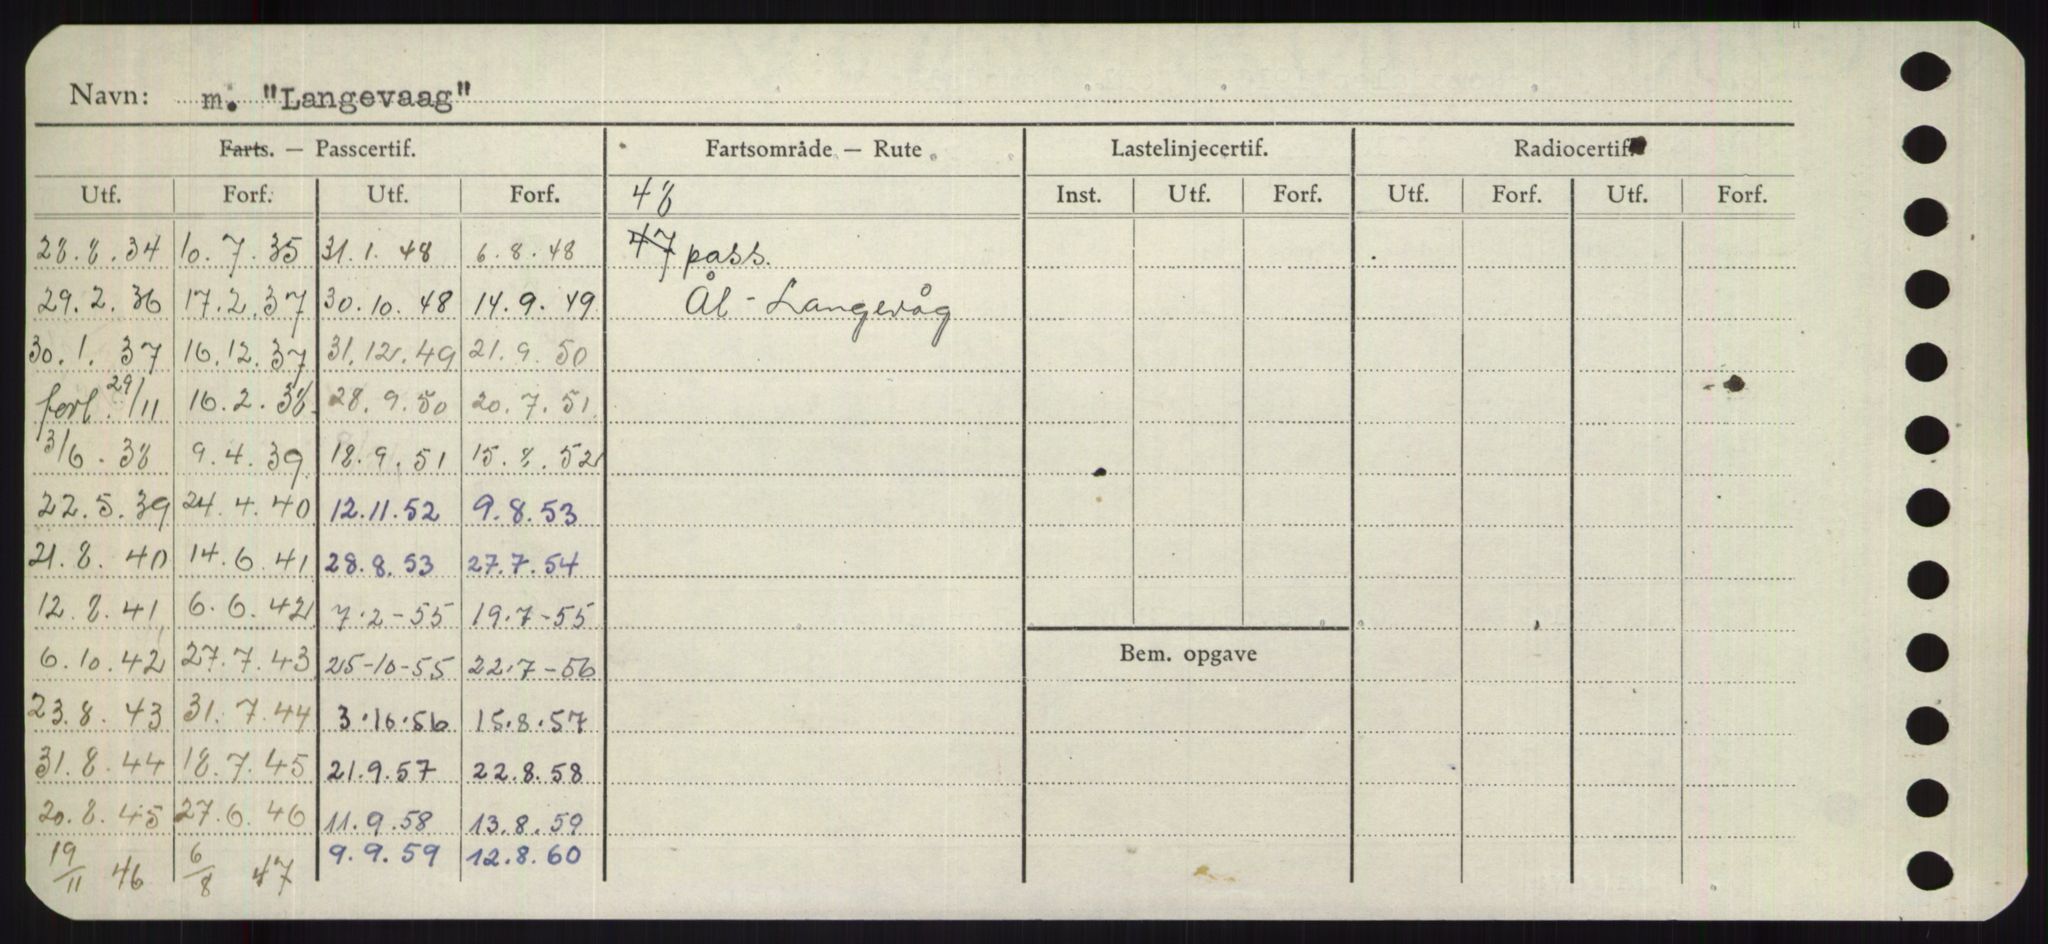 Navn: m. "Langevaag"
Farts. — Passcertif. Fartsområde — Rute Lastelinjecertif. Radiocertif.
Utf. Forf. Utf. Forf. 48 Inst. Utf. Forf. Utf. Forf. Utf. Forf.
28.8.34 10.7.35 31.1.48 6.8.48 47 pass.
29.2.36 17.2.37 30.10.48 14.9.49 Ål - Langevåg
30.1.37 16.12.37 31.12.49 21.9.50
forl. 29/11 16.2.38 28.9.50 20.7.51
3/6.38 9.4.39 18.9.51 15.8.52
22.5.39 24.4.40 12.11.52 9.8.53
21.8.40 14.6.41 28.8.53 27.7.54
12.8.41 6.6.42 7.2-55 19.7-55
6.10.42 27.7.43 25-10-55 22.7-56 Bem. opgave
23.8.43 31.7.44 3.10.56 15.8.57
31.8.44 18.7.45 21.9.57 22.8.58
20.8.45 27.6.46 11.9.58 13.8.59
19/11 46 6/8 47 9.9.59 12.8.60